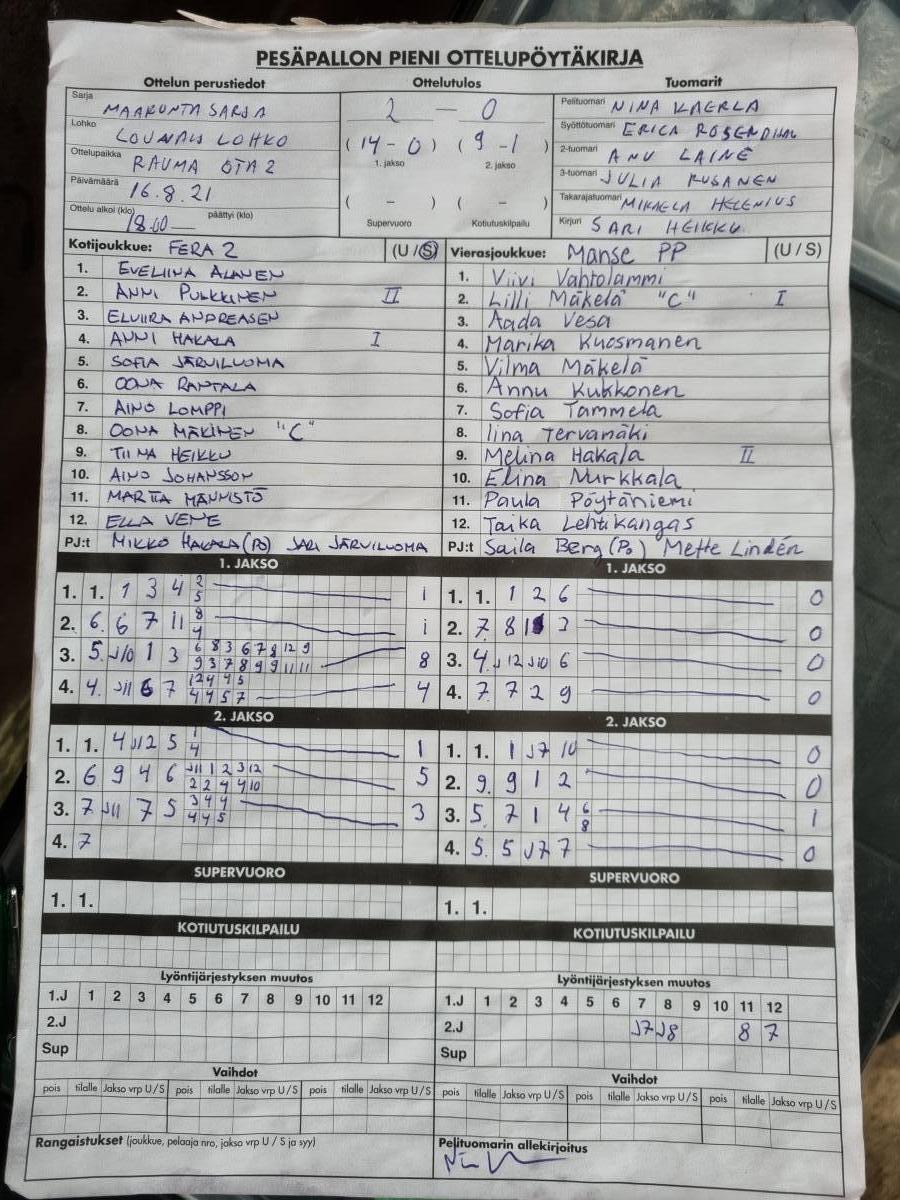 PESÄPALLON PIENI OTTELUPÖYTÄKIRJA
Ottelun perustiedot
Sarja MAAKUNTASARJA
Lohko LOUNAIS LOHKO
Ottelupaikka RAUMA OTA 2
Päivämäärä 16.8.21
Ottelu alkoi (klo) 18.00 — päättyi (klo)
Ottelutulos
2 — 0
( 14 - 0 ) ( 9 - 1 )
1. jakso 2. jakso
( - ) ( - )
Supervuoro Kotiutuskilpailu
Tuomarit
Pelituomari NINA KAERLA
Syöttötuomari ERICA ROSENDAHL
2-tuomari ANU LAINE
3-tuomari JULIA RUSANEN
Takarajatuomari MIKAELA HELENIUS
Kirjuri SARI HEIKKU
Kotijoukkue: FERA 2 (U / S)
1. EVELIINA ALANEN
2. ANNI PULKKINEN II
3. ELVIIRA ANDREASEN
4. ANNI HAKALA I
5. SOFIA JÄRVILUOMA
6. OONA RANTALA
7. AINO LOMPPI
8. OONA MÄKINEN "C"
9. TIINA HEIKKU
10. AINO JOHANSSON
11. MARTTA MÄNNISTÖ
12. ELLA VENE
PJ:t MIKKO HAKALA (PO) SARI JÄRVILUOMA
Vierasjoukkue: Manse PP (U / S)
1. Viivi Vahtolammi
2. Lilli Mäkelä "C" I
3. Aada Vesa
4. Marika Kuosmanen
5. Vilma Mäkelä
6. Annu Kukkonen
7. Sofia Tammela
8. Iina Tervamäki
9. Melina Hakala II
10. Elina Nurkkala
11. Paula Pöytäniemi
12. Taika Lehtikangas
PJ:t Saila Berg (Po) Mette Lindén
1. JAKSO
1. 1. 1 3 4 2 5 1
2. 6 6 7 11 8 4 1
3. 5 J10 1 3 6 8 3 6 7 8 12 9 8
9 3 7 8 9 9 11 11
4. 4 J11 6 7 12 4 4 5 4
4 4 5 7
1. JAKSO
1. 1. 1 2 6 0
2. 7 8 1 3 0
3. 4 J12 J10 6 0
4. 7 7 2 9 0
2. JAKSO
1. 1. 4 J12 5 1 4 1
2. 6 9 4 6 J11 1 2 3 12 5
2 2 4 4 10
3. 7 J11 7 5 3 4 4 3
4 4 5
4. 7
2. JAKSO
1. 1. 1 J7 10 0
2. 9 9 1 2 0
3. 5 7 1 4 6 8 1
4. 5 5 J7 7 0
SUPERVUORO
1. 1.
SUPERVUORO
1. 1.
KOTIUTUSKILPAILU
KOTIUTUSKILPAILU
Lyöntijärjestyksen muutos
1.J 1 2 3 4 5 6 7 8 9 10 11 12
2.J
Sup
Lyöntijärjestyksen muutos
1.J 1 2 3 4 5 6 7 8 9 10 11 12
2.J J7 J8 8 7
Sup
Vaihdot
pois tilalle Jakso vrp U / S pois tilalle Jakso vrp U / S pois tilalle Jakso vrp U / S
Vaihdot
pois tilalle Jakso vrp U / S pois tilalle Jakso vrp U / S pois tilalle Jakso vrp U / S
Rangaistukset (joukkue, pelaaja nro, jakso vrp U / S ja syy)
Pelituomarin allekirjoitus